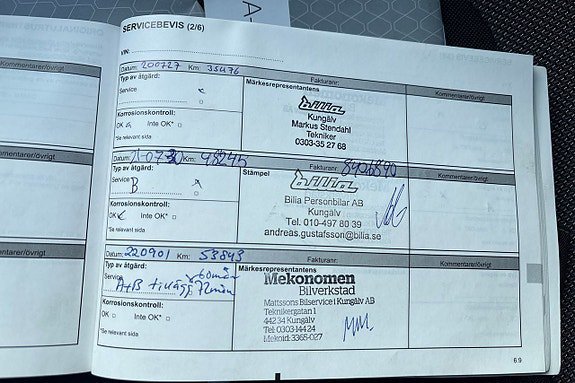 A-
SERVICEBEVIS (2/6)
VIN:
Datum: 200727 Km: 35476 Fakturanr:
Kommentarer/övrigt
Typ av åtgärd:
Service
Märkesrepresentantens
Kommentarer/övrigt
bilia
Kungälv
Markus Stendahl
Tekniker
0303-35 27 68
Korrosionskontroll:
OK Inte OK*
*Se relevant sida
Datum: 21-07-30 Km: 48245 Fakturanr:
Kommentarer/övrigt
Typ av åtgärd:
Service
B
Stämpel
Kommentarer/övrigt
bilia
Bilia Personbilar AB
Kungälv
Tel. 010-497 80 39
andreas.gustafsson@bilia.se
Korrosionskontroll:
OK Inte OK*
*Se relevant sida
Datum: 220901 Km: 53843 Fakturanr:
Kommentarer/övrigt
Typ av åtgärd:
Service
A+B tillägg 72mån
Märkesrepresentantens
Kommentarer/övrigt
Mekonomen
Bilverkstad
Mattssons Bilservice i Kungälv AB
Teknikergatan 1
442 34 Kungälv
Tel: 0303-144 24
Mekoid: 3365-027
Korrosionskontroll:
OK Inte OK*
*Se relevant sida
6.9